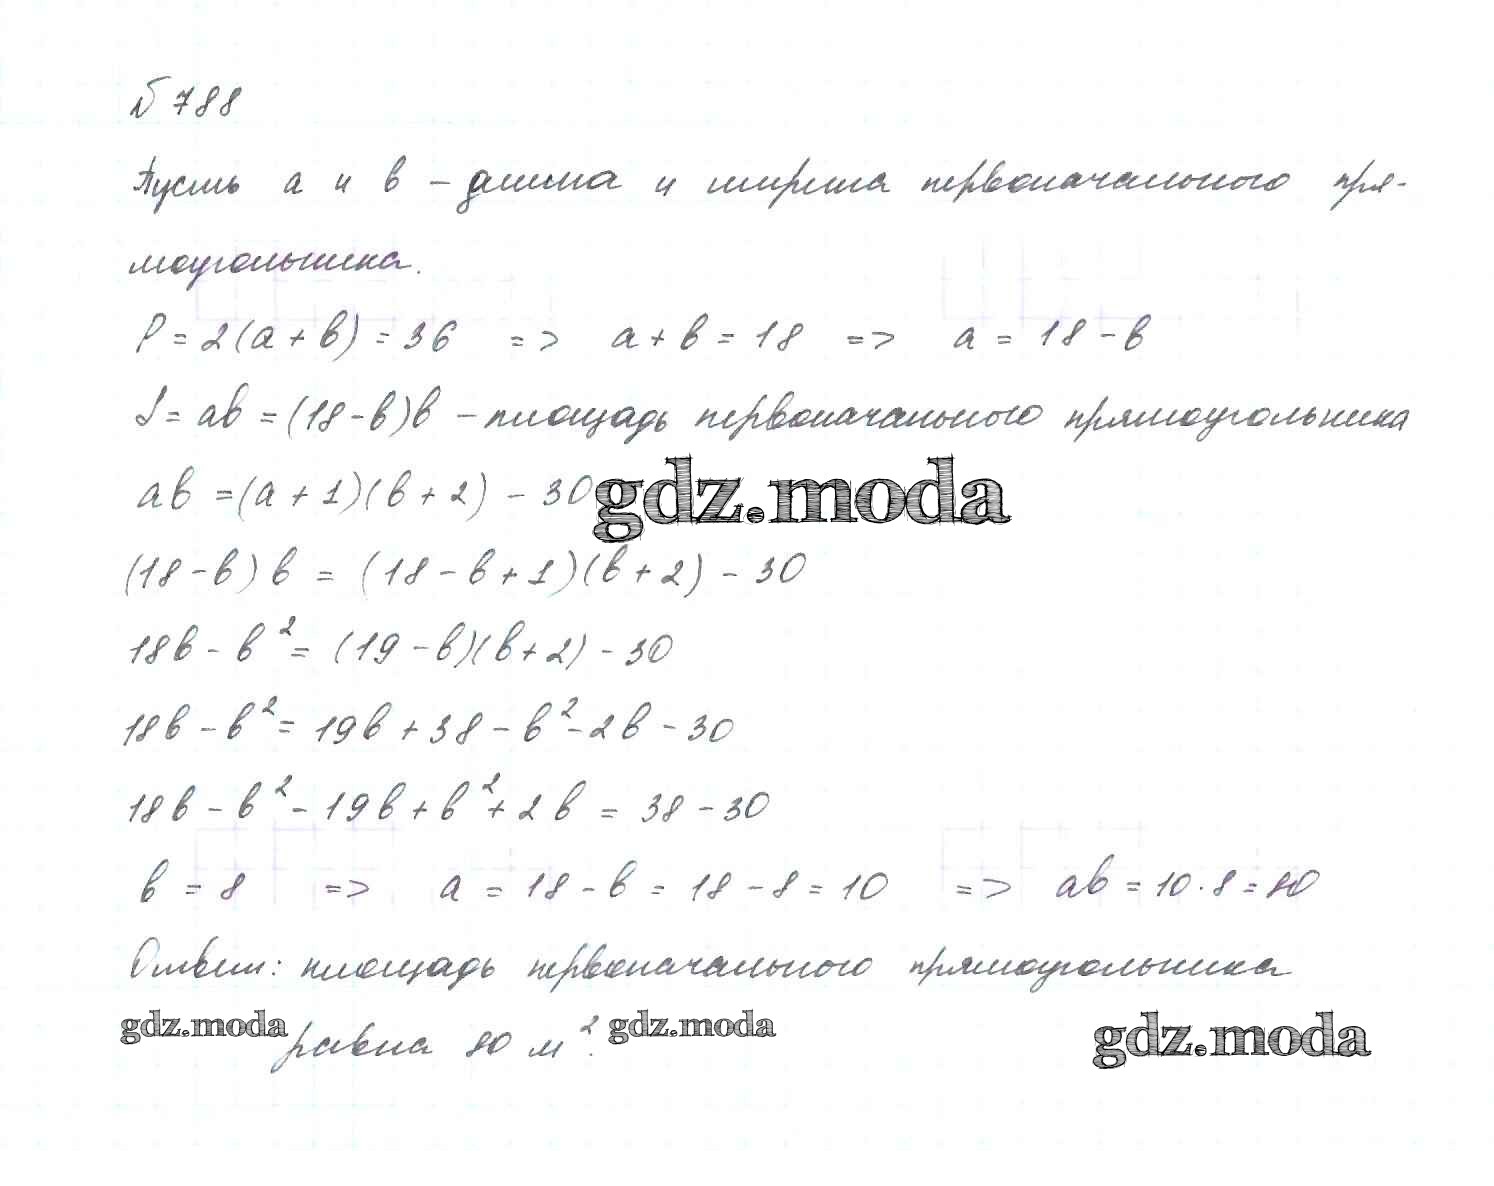 № 788
Пусть a и b – длина и ширина первоначального пря-
моугольника.
P = 2(a + b) = 36 => a + b = 18 => a = 18 - b
S = ab = (18 - b)b – площадь первоначального прямоугольника
ab = (a + 1)(b + 2) - 30
gdz.moda
(18 - b)b = (18 - b + 1)(b + 2) - 30
18b - b² = (19 - b)(b + 2) - 30
18b - b² = 19b + 38 - b² - 2b - 30
18b - b² - 19b + b² + 2b = 38 - 30
b = 8 => a = 18 - b = 18 - 8 = 10 => ab = 10 · 8 = 80
Ответ: площадь первоначального прямоугольника
gdz.moda равна 80 м². gdz.moda gdz.moda